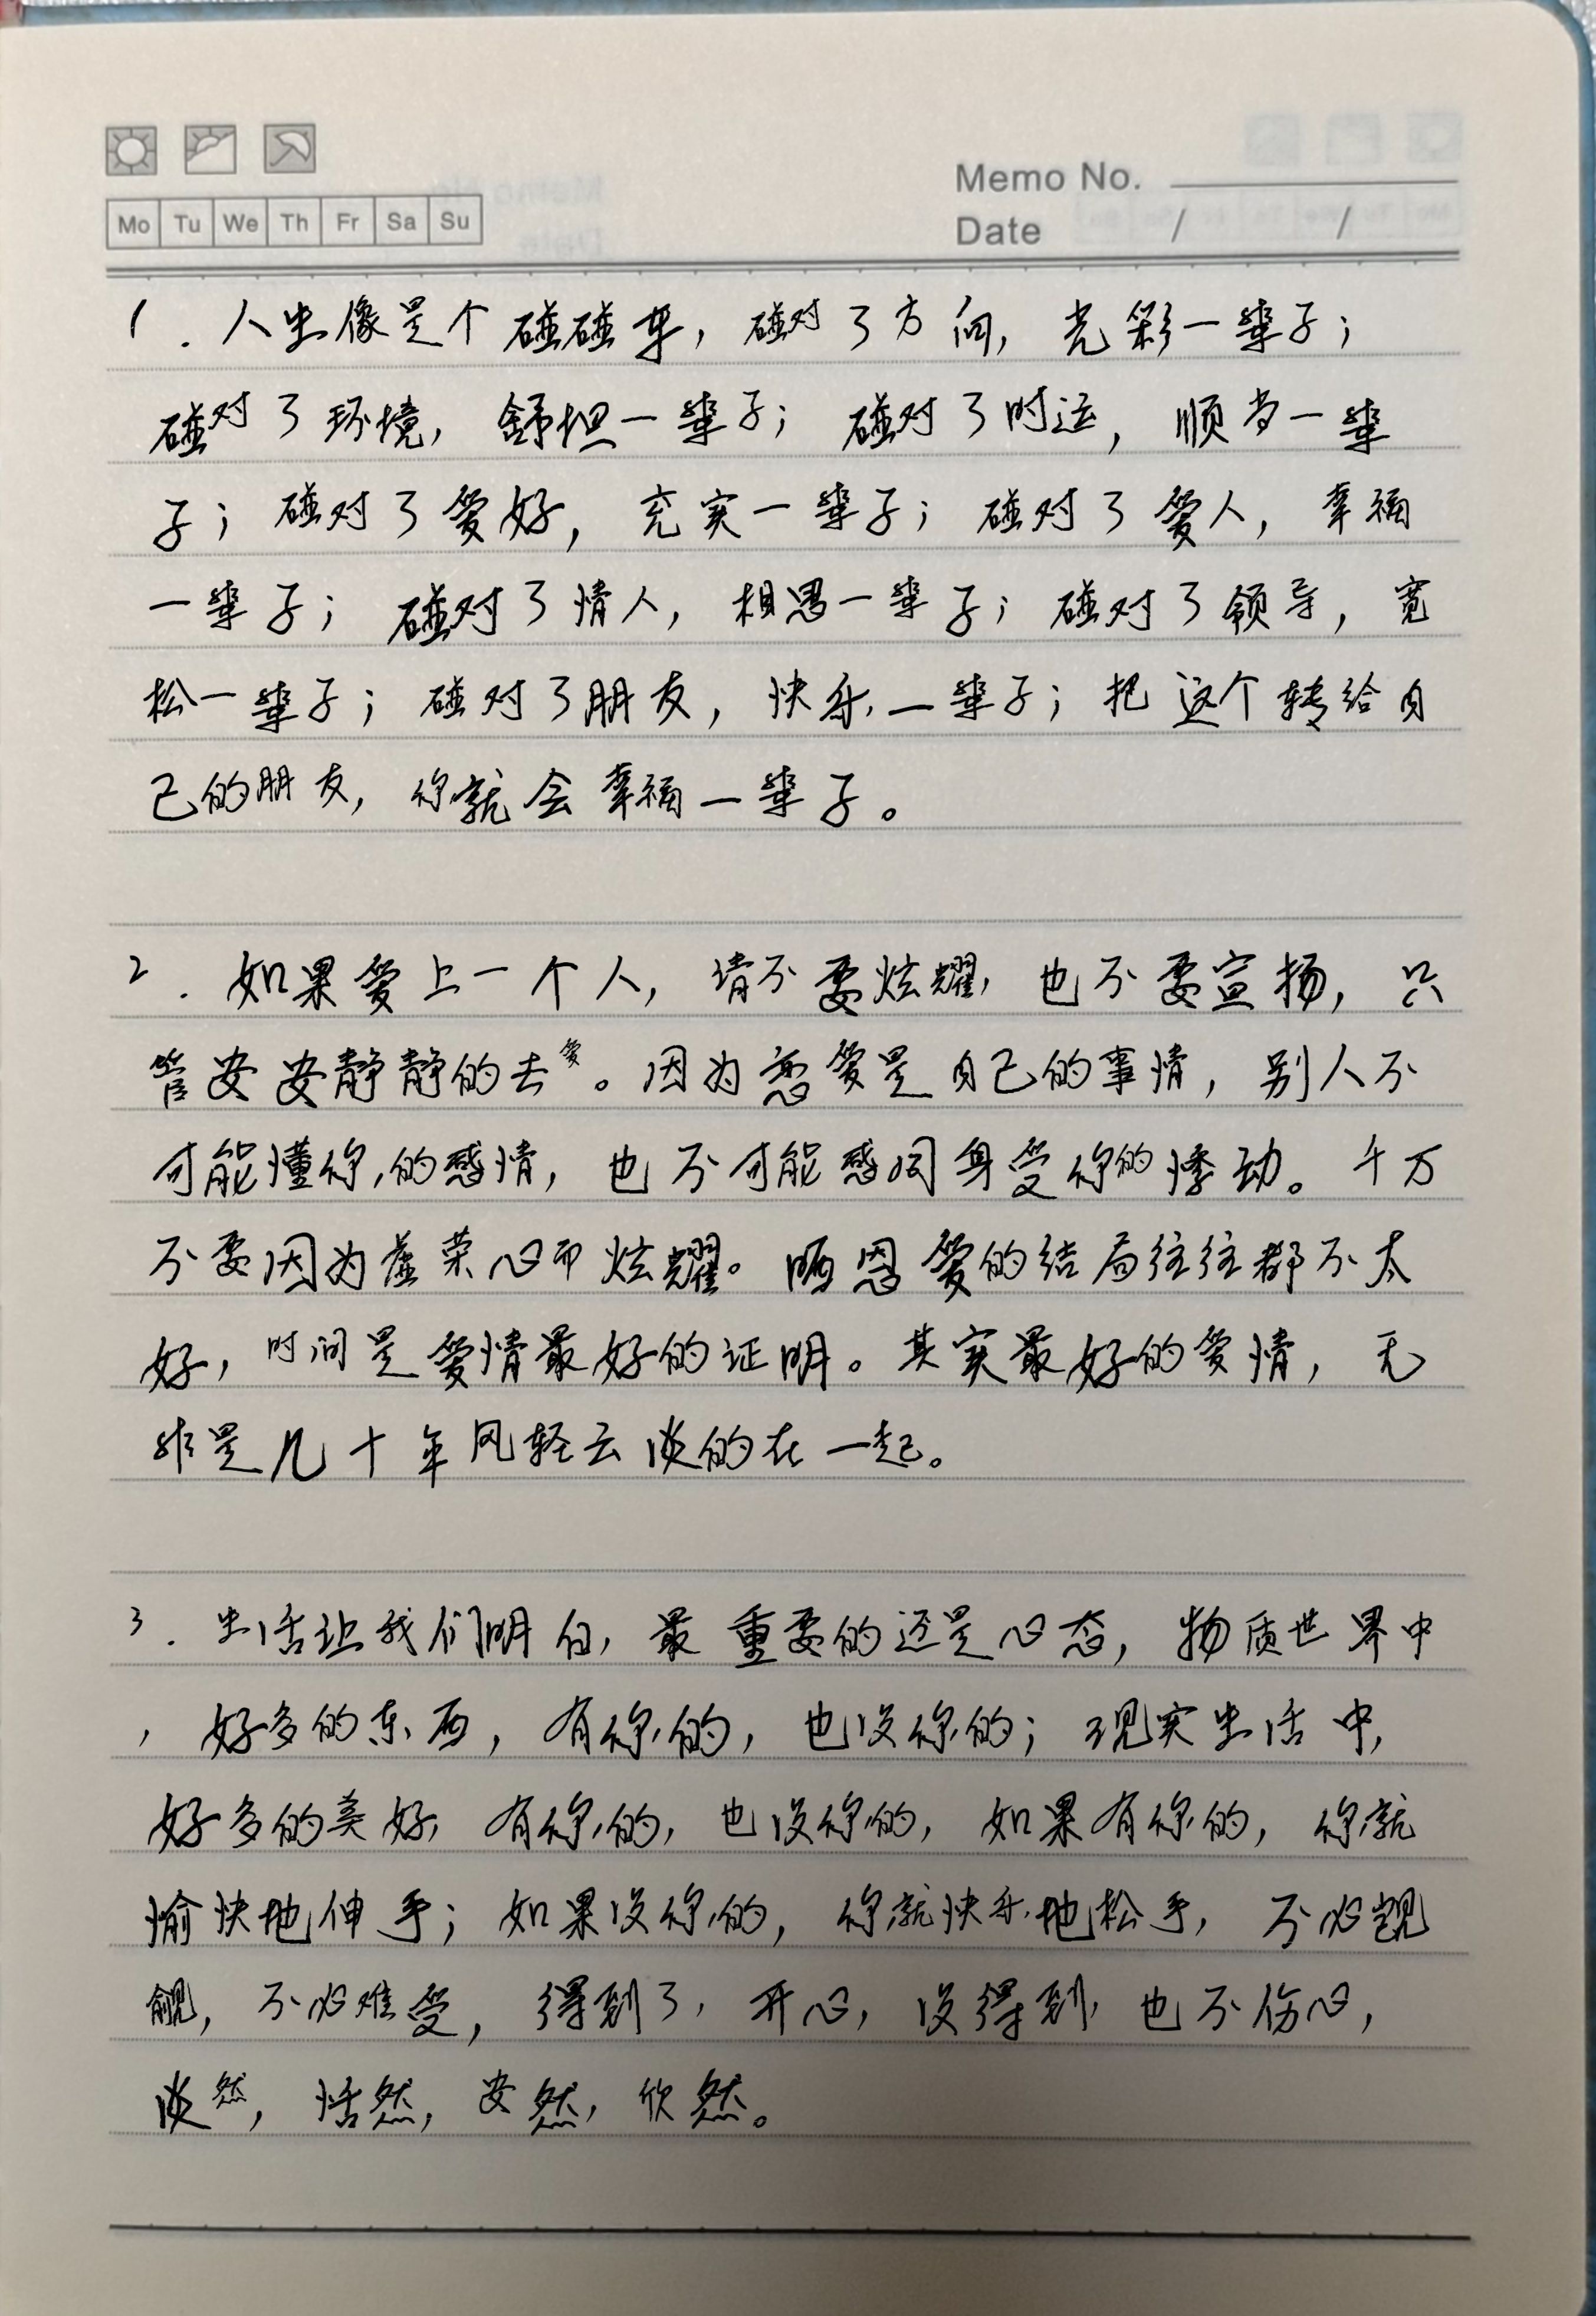 Memo No.
Mo Tu We Th Fr Sa Su
Date / /
1. 人生像是个碰碰车，碰对了方向，光彩一辈子；
碰对了环境，舒坦一辈子；碰对了时运，顺当一辈
子；碰对了爱好，充实一辈子；碰对了爱人，幸福
一辈子；碰对了情人，相思一辈子；碰对了领导，宽
松一辈子；碰对了朋友，快乐一辈子；把这个转给自
己的朋友，你就会幸福一辈子。
2. 如果爱上一个人，请不要炫耀，也不要宣扬，只
管安安静静的去爱。因为恋爱是自己的事情，别人不
可能懂你的感情，也不可能感同身受你的悸动。千万
不要因为虚荣心而炫耀。晒恩爱的结局往往都不太
好，时间是爱情最好的证明。其实最好的爱情，无
非是几十年风轻云淡的在一起。
3. 生活让我们明白，最重要的还是心态，物质世界中
，好多的东西，有你的，也没你的；现实生活中，
好多的美好，有你的，也没你的，如果有你的，你就
愉快地伸手；如果没你的，你就快乐地松手，不必觊
觎，不必难受，得到了，开心，没得到，也不伤心，
淡然，恬然，安然，欣然。